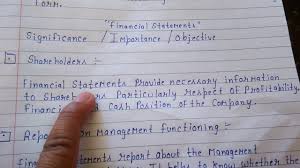 Form.
"Financial Statements"
Significance / Importance / Objective
Shareholders :-
Financial Statements Provide necessary information
to Shareholders Particularly respect of Profitability
Financial Cash Position of the Company.
on Management functioning :-
statements report about the Management
helps to know whether the